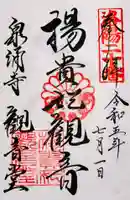 奉拝
令和五年
七月一日
楊貴妃観音
泉涌寺
観音堂